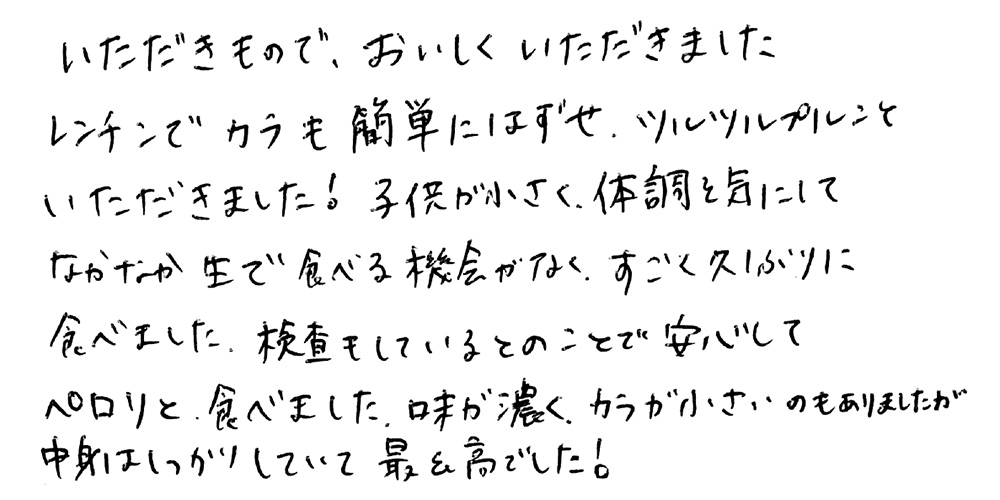 いただきもので、おいしくいただきました
レンチンでカラも簡単にはずせ、ツルツルプルンと
いただきました!子供が小さく、体調を気にして
なかなか生で食べる機会がなく、すごく久しぶりに
食べました。検査もしているとのことで安心して
ペロリと、食べました。味が濃く、カラが小さいのもありましたが
中身はしっかりしていて最&高でした!